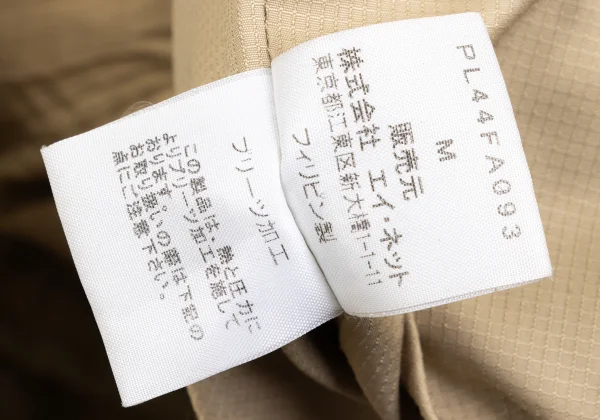 PL44FA093
M
販売元
株式会社 エイ・ネット
東京都江東区新大橋1-1-11
フィリピン製
プリーツ加工
この製品は、熱と圧力に
よりプリーツ加工を施して
おります。
お取り扱いの際は下記の
点にご注意下さい。